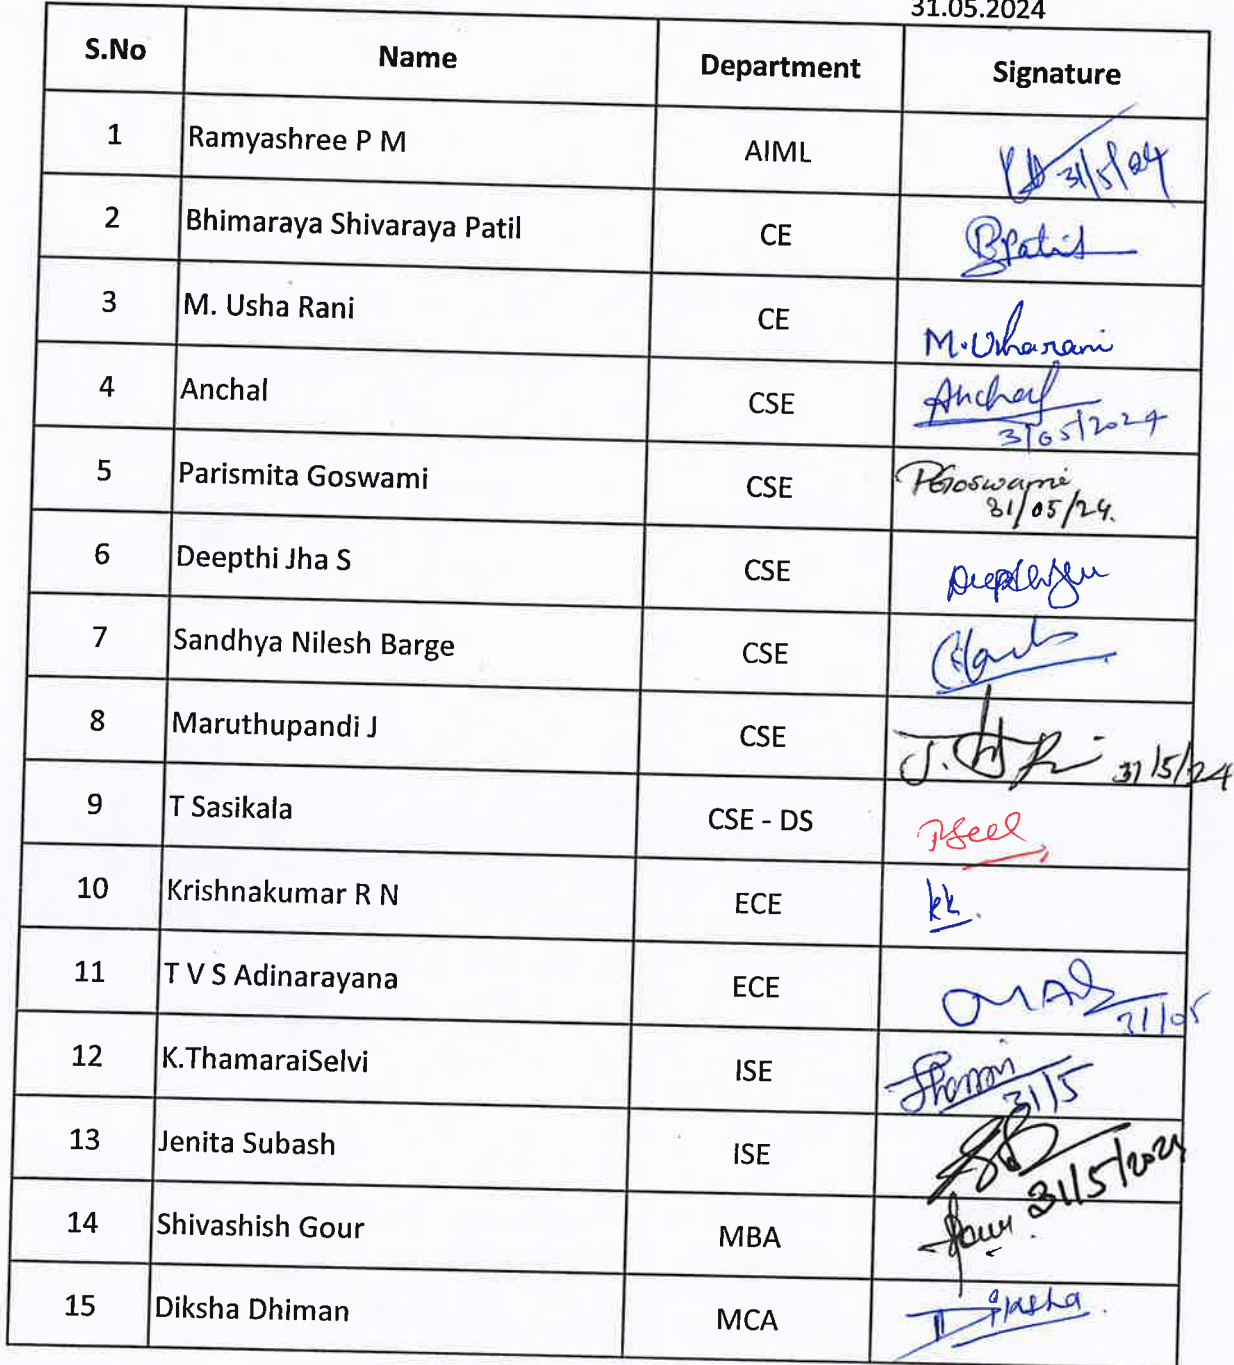 31.05.2024
S.No Name Department Signature
1 Ramyashree P M AIML 31/5/24
2 Bhimaraya Shivaraya Patil CE BPatil
3 M. Usha Rani CE M.Usharani
4 Anchal CSE Anchal
31/05/2024
5 Parismita Goswami CSE PGoswami
31/05/24.
6 Deepthi Jha S CSE
7 Sandhya Nilesh Barge CSE
8 Maruthupandi J CSE J. 31/5/24
9 T Sasikala CSE - DS
10 Krishnakumar R N ECE kk.
11 T V S Adinarayana ECE 31/05
12 K.ThamaraiSelvi ISE
31/5
13 Jenita Subash ISE 31/5/2024
14 Shivashish Gour MBA
15 Diksha Dhiman MCA Diksha.